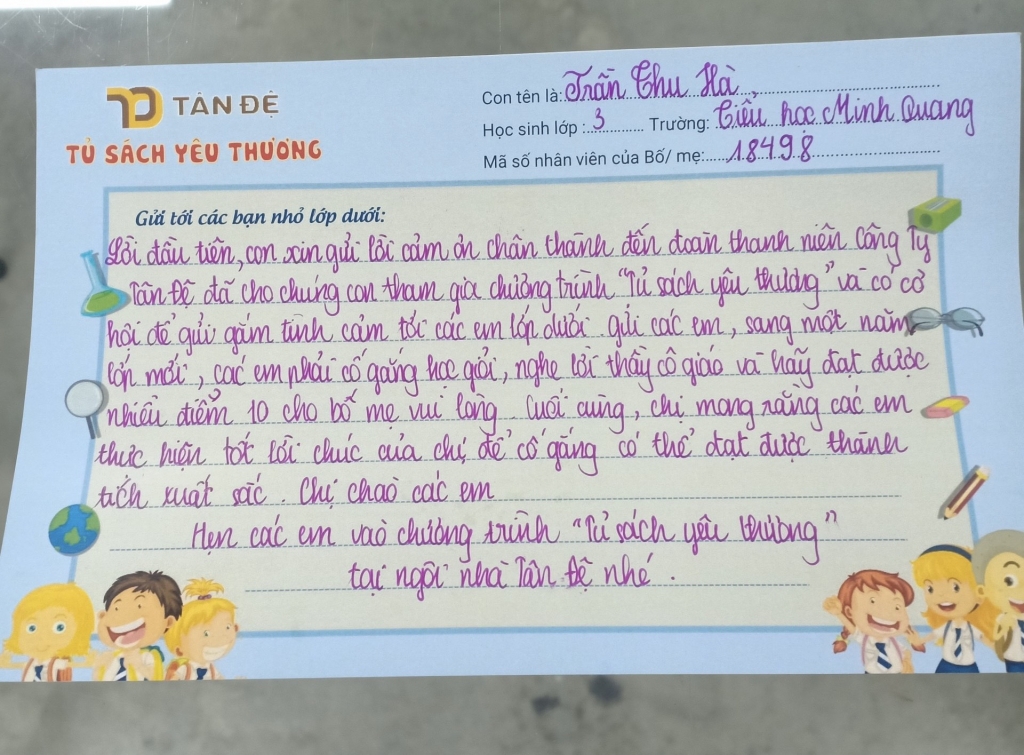 TÂN ĐỆ
TỦ SÁCH YÊU THƯƠNG
Con tên là: Trần Thu Hà
Học sinh lớp : 3 Trường: Tiểu học Minh Quang
Mã số nhân viên của Bố/ mẹ: 18498
Gửi tới các bạn nhỏ lớp dưới:
Lời đầu tiên, con xin gửi lời cảm ơn chân thành đến đoàn thanh niên Công Ty
Tân Đệ đã cho chúng con tham gia chương trình "Tủ sách yêu thương" và có cơ
hội để gửi gắm tình cảm tới các em lớp dưới. gửi các em, sang một năm
lớp mới, các em phải cố gắng học giỏi, nghe lời thầy cô giáo và hãy đạt được
nhiều điểm 10 cho bố mẹ vui lòng. Cuối cùng, chị mong rằng các em
thực hiện tốt lời chúc của chị để cố gắng có thể đạt được thành
tích xuất sắc. Chị chào các em
Hẹn các em vào chương trình "Tủ sách yêu thương"
tại ngôi nhà Tân Đệ nhé.